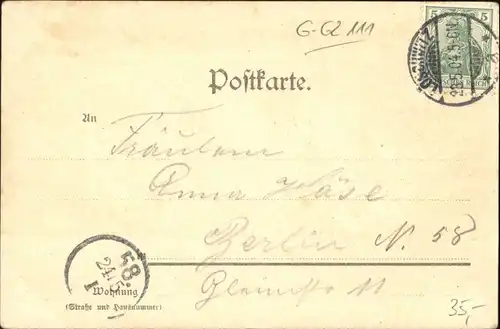 G-GZ 111
5 5
Postkarte.
An
Fräulein
Anna Häse
Berlin N. 58
58.
24.5
Wohnung
(Straße und Hausnummer)
35,-